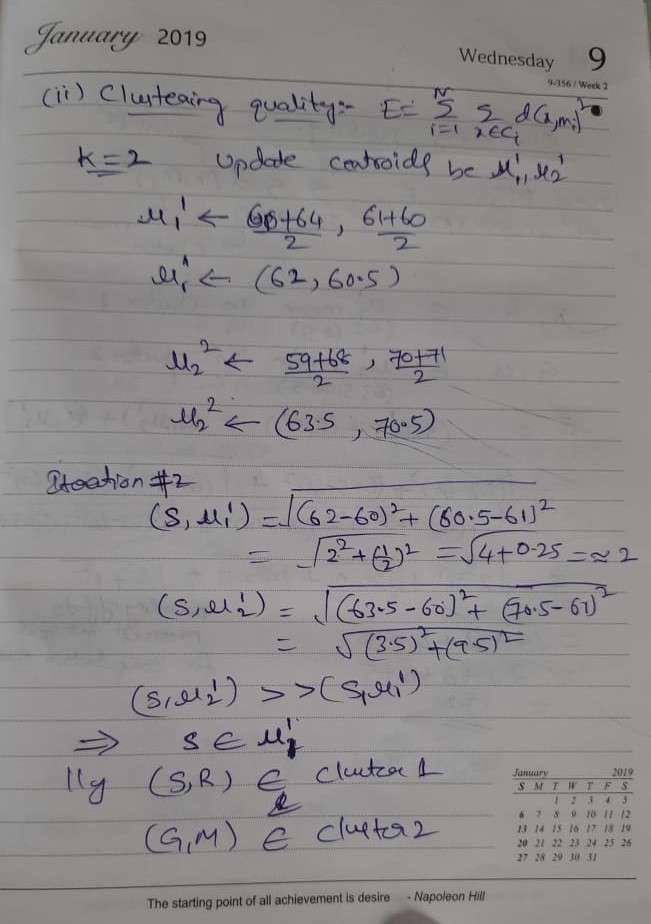 January 2019
Wednesday 9
9-356 / Week 2
(ii) Clusteaing quality:- E= Σ_{i=1}^{N} Σ_{x∈C_i} d(x,m_i)^2
K=2 Update centroids be μ_1', μ_2'
μ_1' ← (60+64)/2 , (61+60)/2
μ_1' ← (62, 60.5)
μ_2^2 ← (59+68)/2 , (70+71)/2
μ_2^2 ← (63.5 , 70.5)
Iteration #2
(S, μ_1') = √((62-60)^2 + (60.5-61)^2)
= √(2^2 + (1/2)^2) = √4+0.25 = ≈ 2
(S, μ_2') = √((63.5-60)^2 + (70.5-61)^2)
= √((3.5)^2 + (9.5)^2)
(S, μ_2') >> (S, μ_1')
⇒ S ∈ μ_1'
||y (S,R) ∈ cluster 1
&
(G,M) ∈ cluster 2
January 2019
S M T W T F S
1 2 3 4 5
6 7 8 9 10 11 12
13 14 15 16 17 18 19
20 21 22 23 24 25 26
27 28 29 30 31
The starting point of all achievement is desire - Napoleon Hill